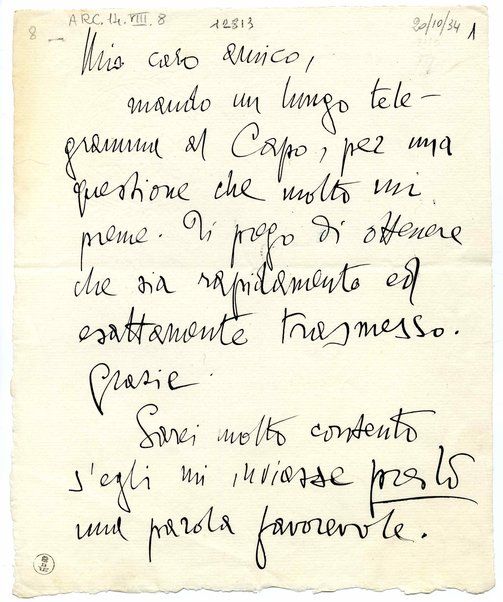 ARC. 14. VIII. 8
12813
20/10/34
1
8
Mio caro amico,
mando un lungo tele-
gramma al Capo, per una
questione che molto mi
preme. Ti prego di ottenere
che sia rapidamente ed
esattamente trasmesso.
Grazie.
Sarei molto contento
s'egli mi inviasse presto
una parola favorevole.